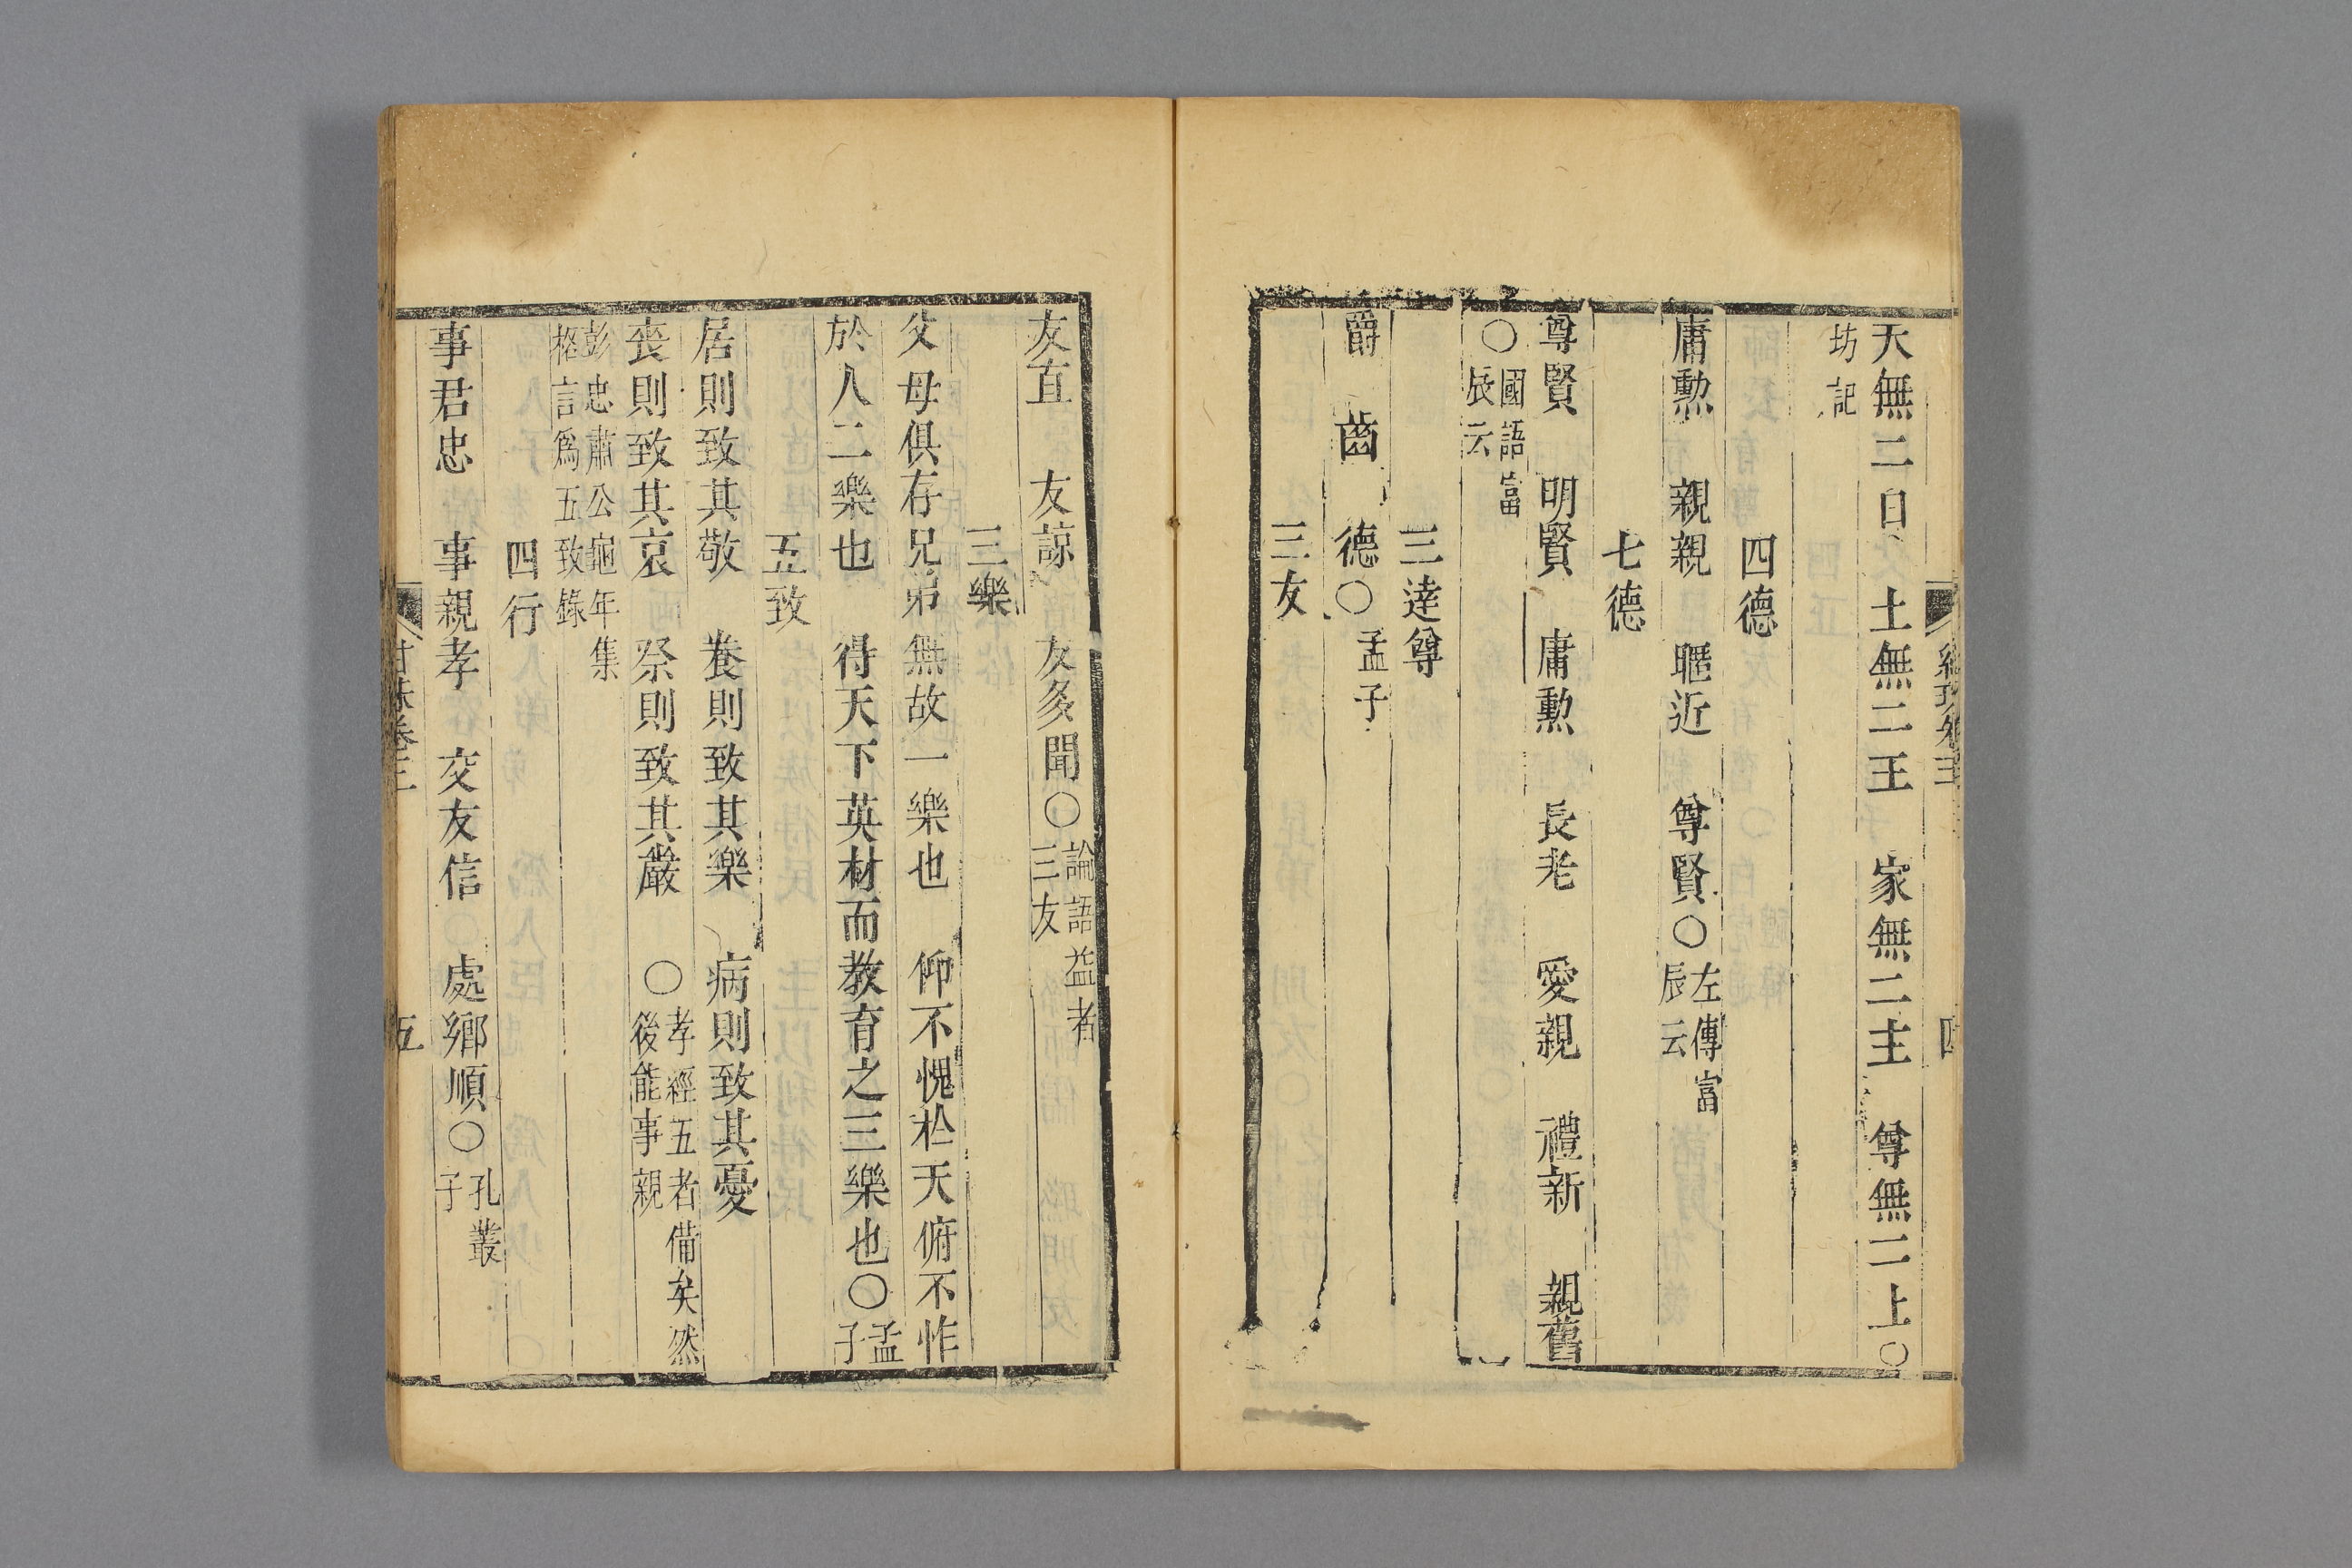 天無二日　土無二王　家無二主　尊無二上○
坊記
四德
庸勲　親親　暱近　尊賢○左傳富
辰云
七德
尊賢　明賢　庸勲　長老　愛親　禮新　親舊
○國語富
辰云
三達尊
爵　齒　德○孟子
三友
友直　友諒　友多聞○論語益者
三友
三樂
父母俱存兄弟無故一樂也　仰不愧於天俯不怍
於人二樂也　得天下英材而教育之三樂也○孟
子
五致
居則致其敬　養則致其樂　病則致其憂
喪則致其哀　祭則致其嚴　○孝經五者備矣然
後能事親
彭忠肅公龜年集
格言爲五致錄
四行
事君忠　事親孝　交友信　處鄉順○孔叢
子
五